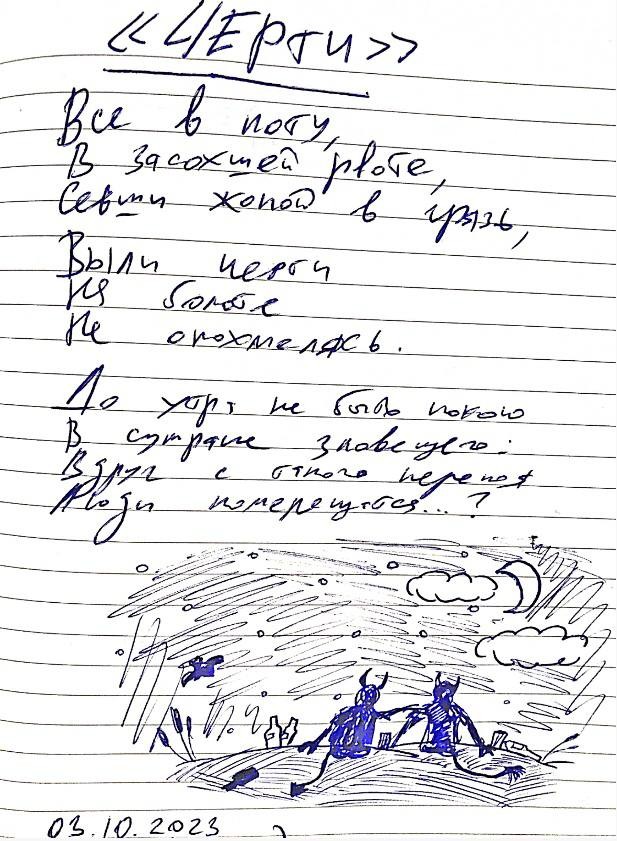 «ЧЕрти»
Все в поту,
В засохшей рвоте,
Севши жопой в грязь,
Выли черти
На болоте
Не опохмелясь.
До утра не было покою
В сутране зловещего:
Вдруг с такого перепоя
Люди померещатся...?
03.10.2023